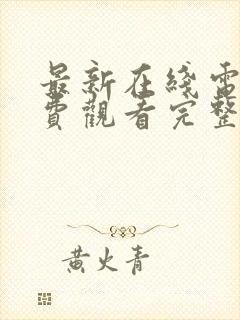 最新在綫電
費觀看完整
黃火青